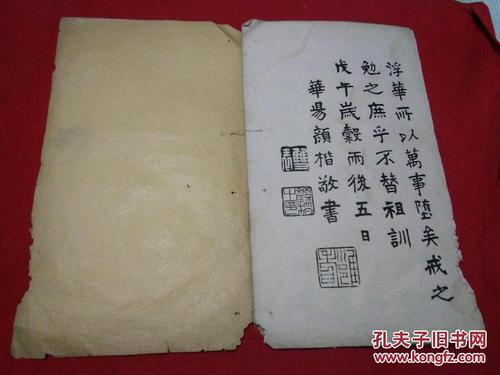 浮華所以萬事墮矣戒之
勉之庶乎不替祖訓
戊午歲穀雨後五日
華陽顏楷敬書
孔夫子旧书网
www.kongfz.com